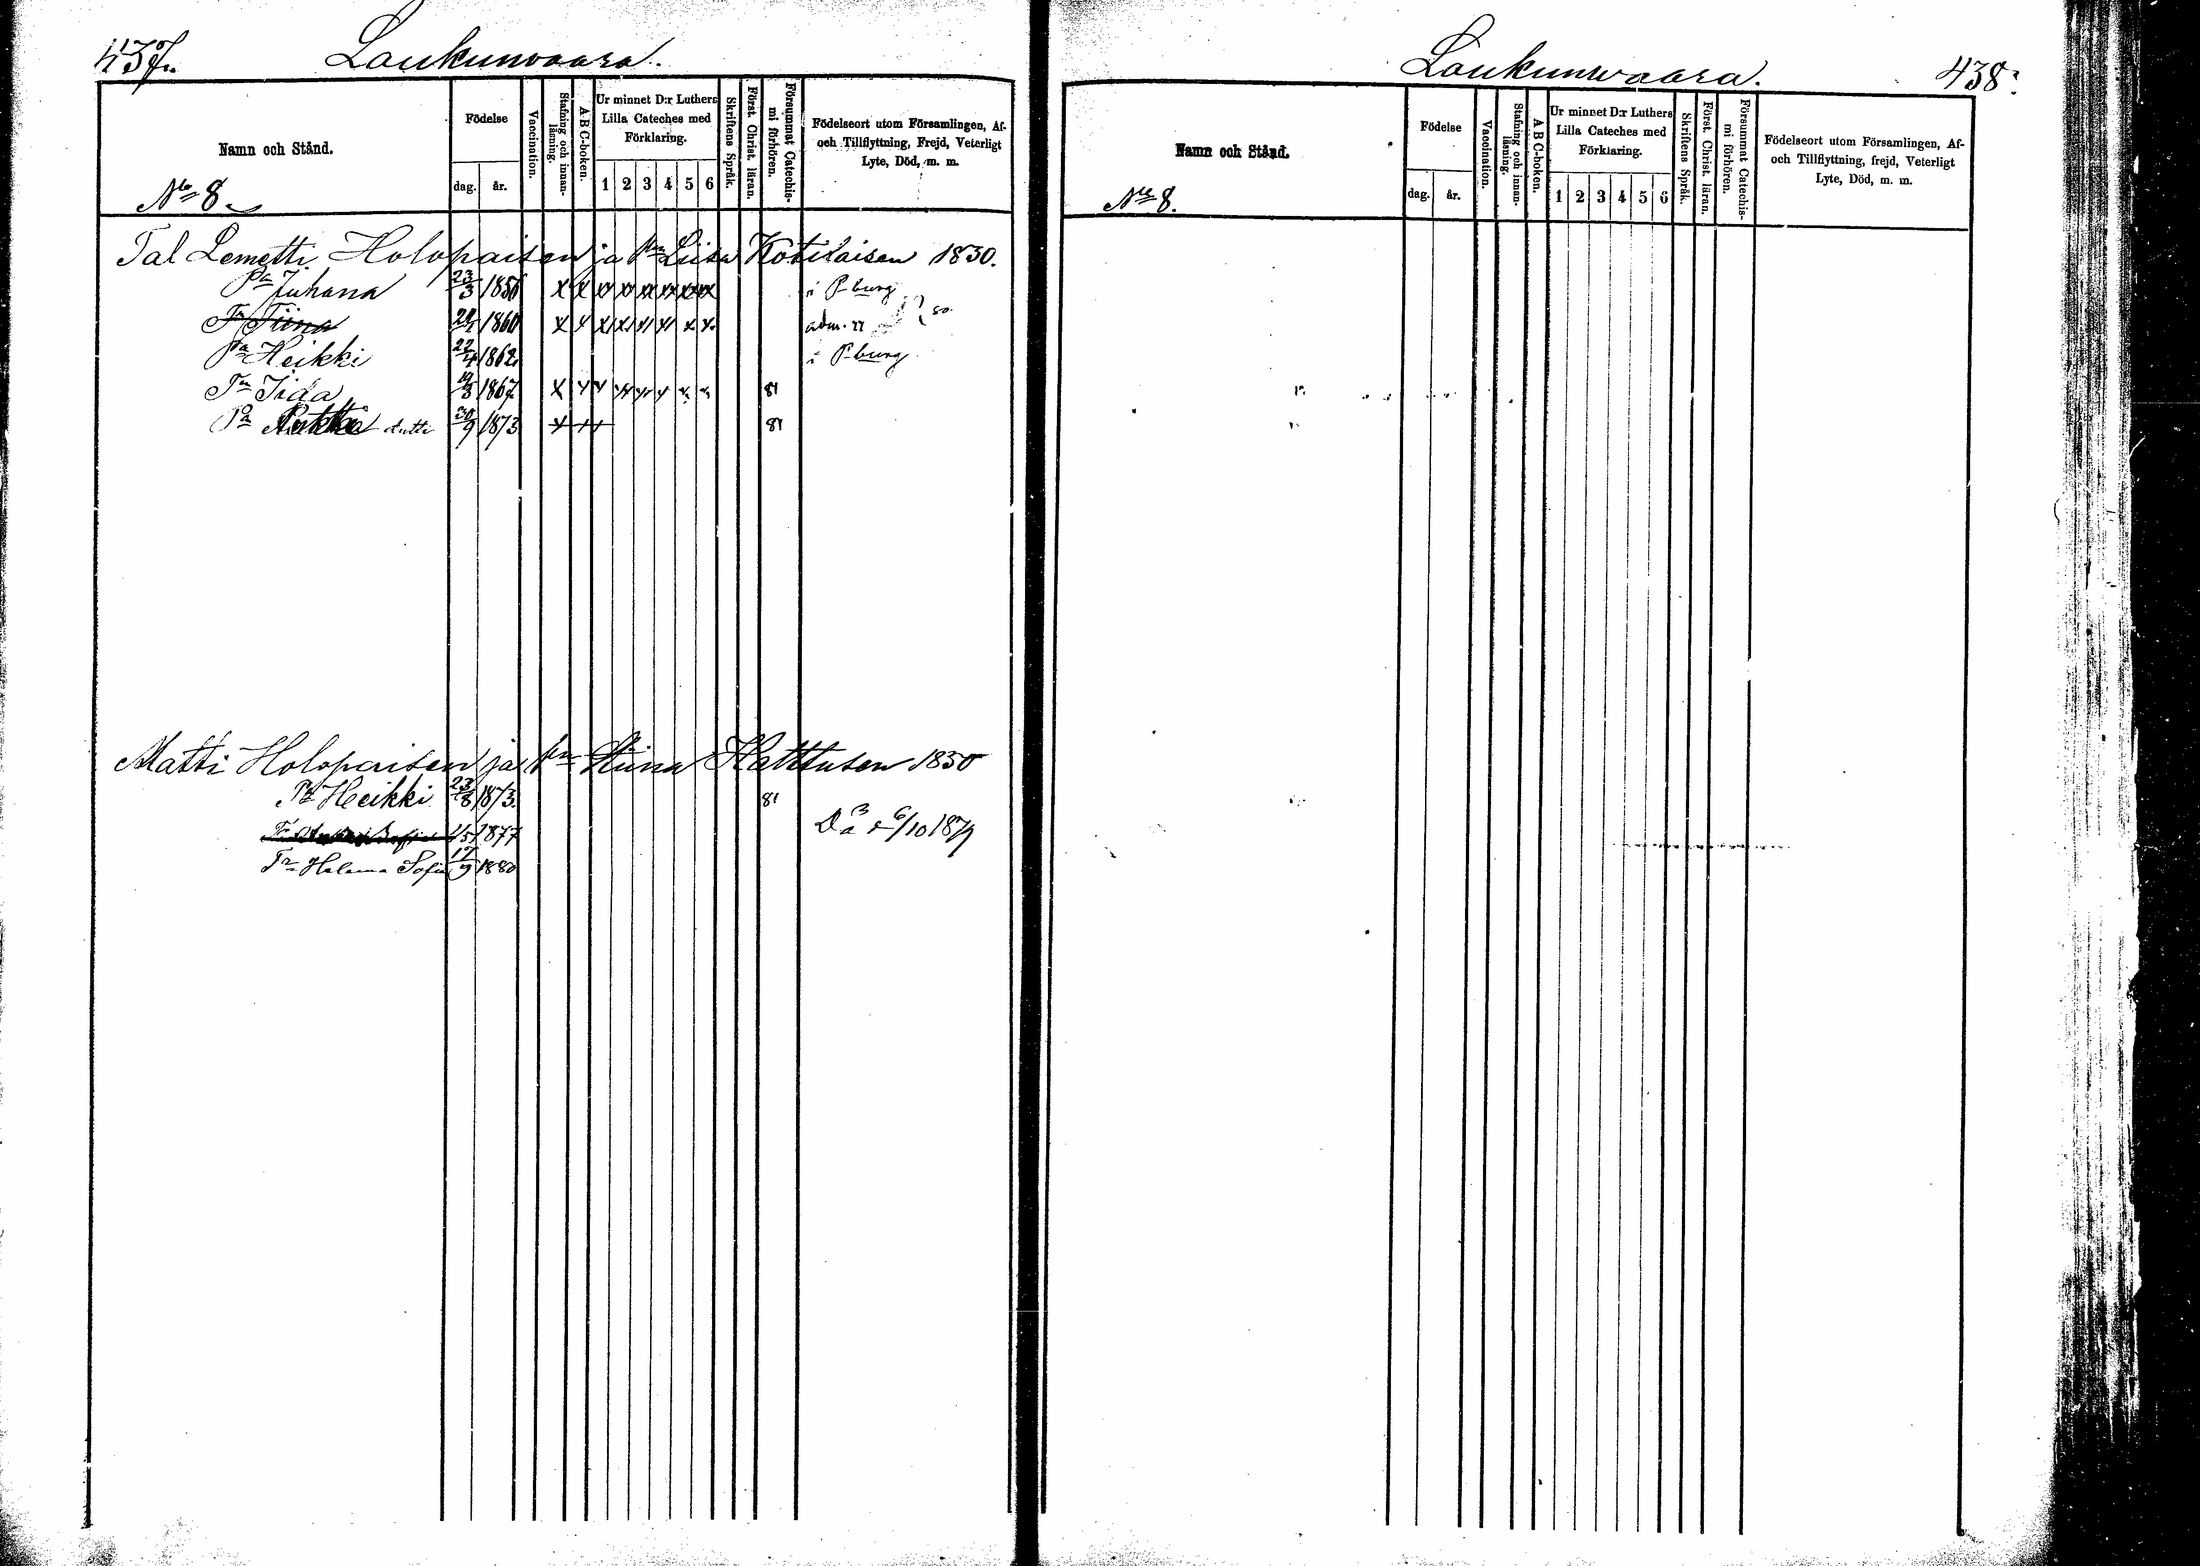 437.
Laukunvaara.
Namn och Stånd.
Födelse
dag.
år.
Vaccination.
Stafning och innanläsning.
A B C-boken.
Ur minnet D:r Luthers Lilla Cateches med Förklaring.
1 2 3 4 5 6
Skriftens Språk.
Först. Christ. läran.
Försummat Catechismi förhören.
Födelseort utom Församlingen, Af- och Tillflyttning, Frejd, Veterligt Lyte, Död, m. m.
No 8.
Tal Lemetti Holopaisen ja vmo Liisa Kotilaisen 1830.
Pa Juhana 23/3 1856 x x xx xx xx xx xx xx i P-burg
Tr Tiina 1860 x x adm. 77 80.
Pa Heikki 22/4 1862 i P-burg
Tr Iida 1867 x 81
Pa Antti 30/9 1873 x 81
Matti Holopaisen ja Hattusen 1850
Pa Heikki 23/8 1873. 81
1877 6/10 1879
Tr Helena Sofia 17/9 1880
Laukunwaara.
438.
Namn och Stånd.
Födelse
dag.
år.
Vaccination.
Stafning och innanläsning.
A B C-bokon.
Ur minnet D:r Luthers Lilla Cateches med Förklaring.
1 2 3 4 5 6
Skriftens Språk.
Först. Christ. läran.
Försummat Catechismi förhören.
Födelseort utom Församlingen, Af- och Tillflyttning, frejd, Veterligt Lyte, Död, m. m.
No 8.